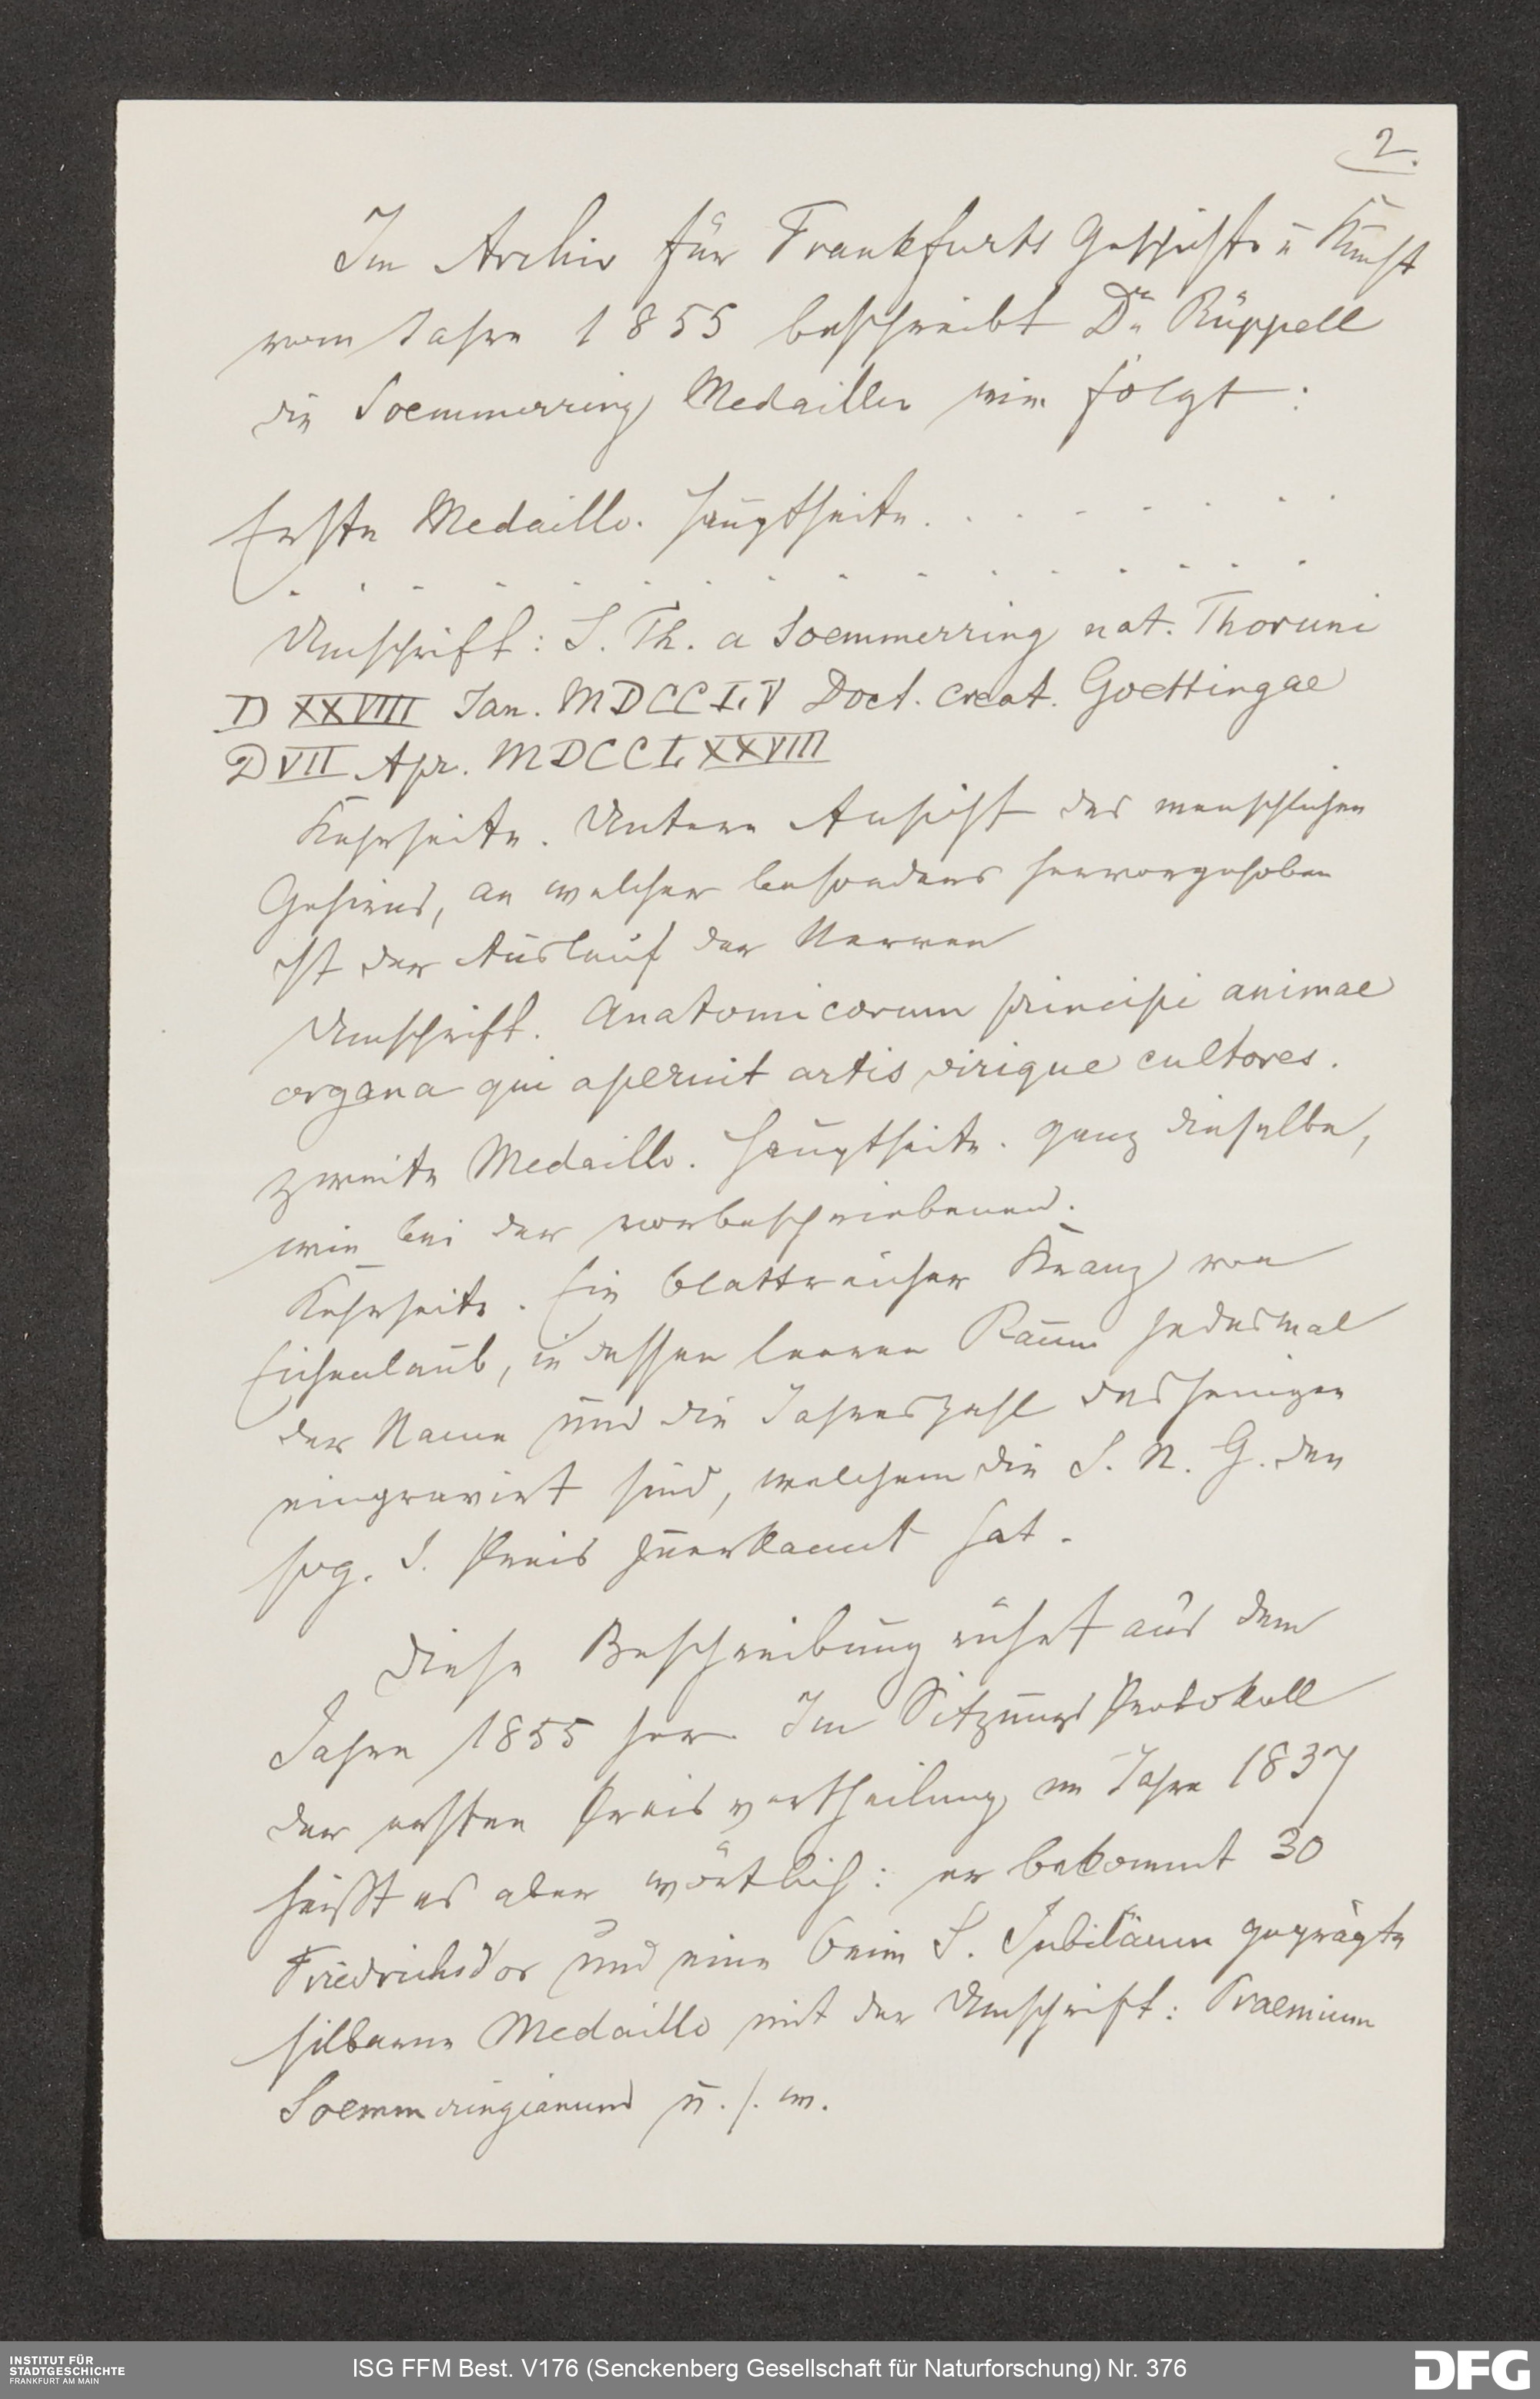 2.
Im Archiv für Frankfurts Geschichte u Kunst
vom Jahre 1855 beschreibt Dr. Rüppell
die Soemmerring Medaillen wie folgt:
Erste Medaille. Hauptseite. . . . . . . .
. . . . . . . . . . . . . . . .
Umschrift: S. Th. a Soemmerring nat. Thoruni
D XXVIII Jan. MDCCLV Doct. creat. Goettingae
D VII Apr. MDCCLXXVIII
Kehrseite. Untere Ansicht des menschlichen
Gehirns, an welcher besonders hervorgehoben
ist der Auslauf der Nerven
Umschrift. Anatomicorum principi animae
organa qui aperuit artis virique cultores.
Zweite Medaille. Hauptseite. ganz dieselbe,
wie bei der vorbeschriebenen.
Kehrseite. Ein blattreicher Kranz von
Eichenlaub, in dessen leeren Raum jedesmal
der Name und die Jahreszahl desjenigen
eingravirt sind, welchem die S. N. G. den
sog. S. Preis zuerkannt hat.
Diese Beschreibung rührt aus dem
Jahre 1855 her. Im Sitzungs Protokoll
der ersten Preisvertheilung im Jahre 1837
heißt es aber wörtlich: er bekommt 30
Friedrichsd'or und eine beim S. Jubiläum geprägte
silberne Medaille mit der Umschrift: Praemium
Soemmeringianum u. s. w.
INSTITUT FÜR
STADTGESCHICHTE
FRANKFURT AM MAIN
ISG FFM Best. V176 (Senckenberg Gesellschaft für Naturforschung) Nr. 376
DFG